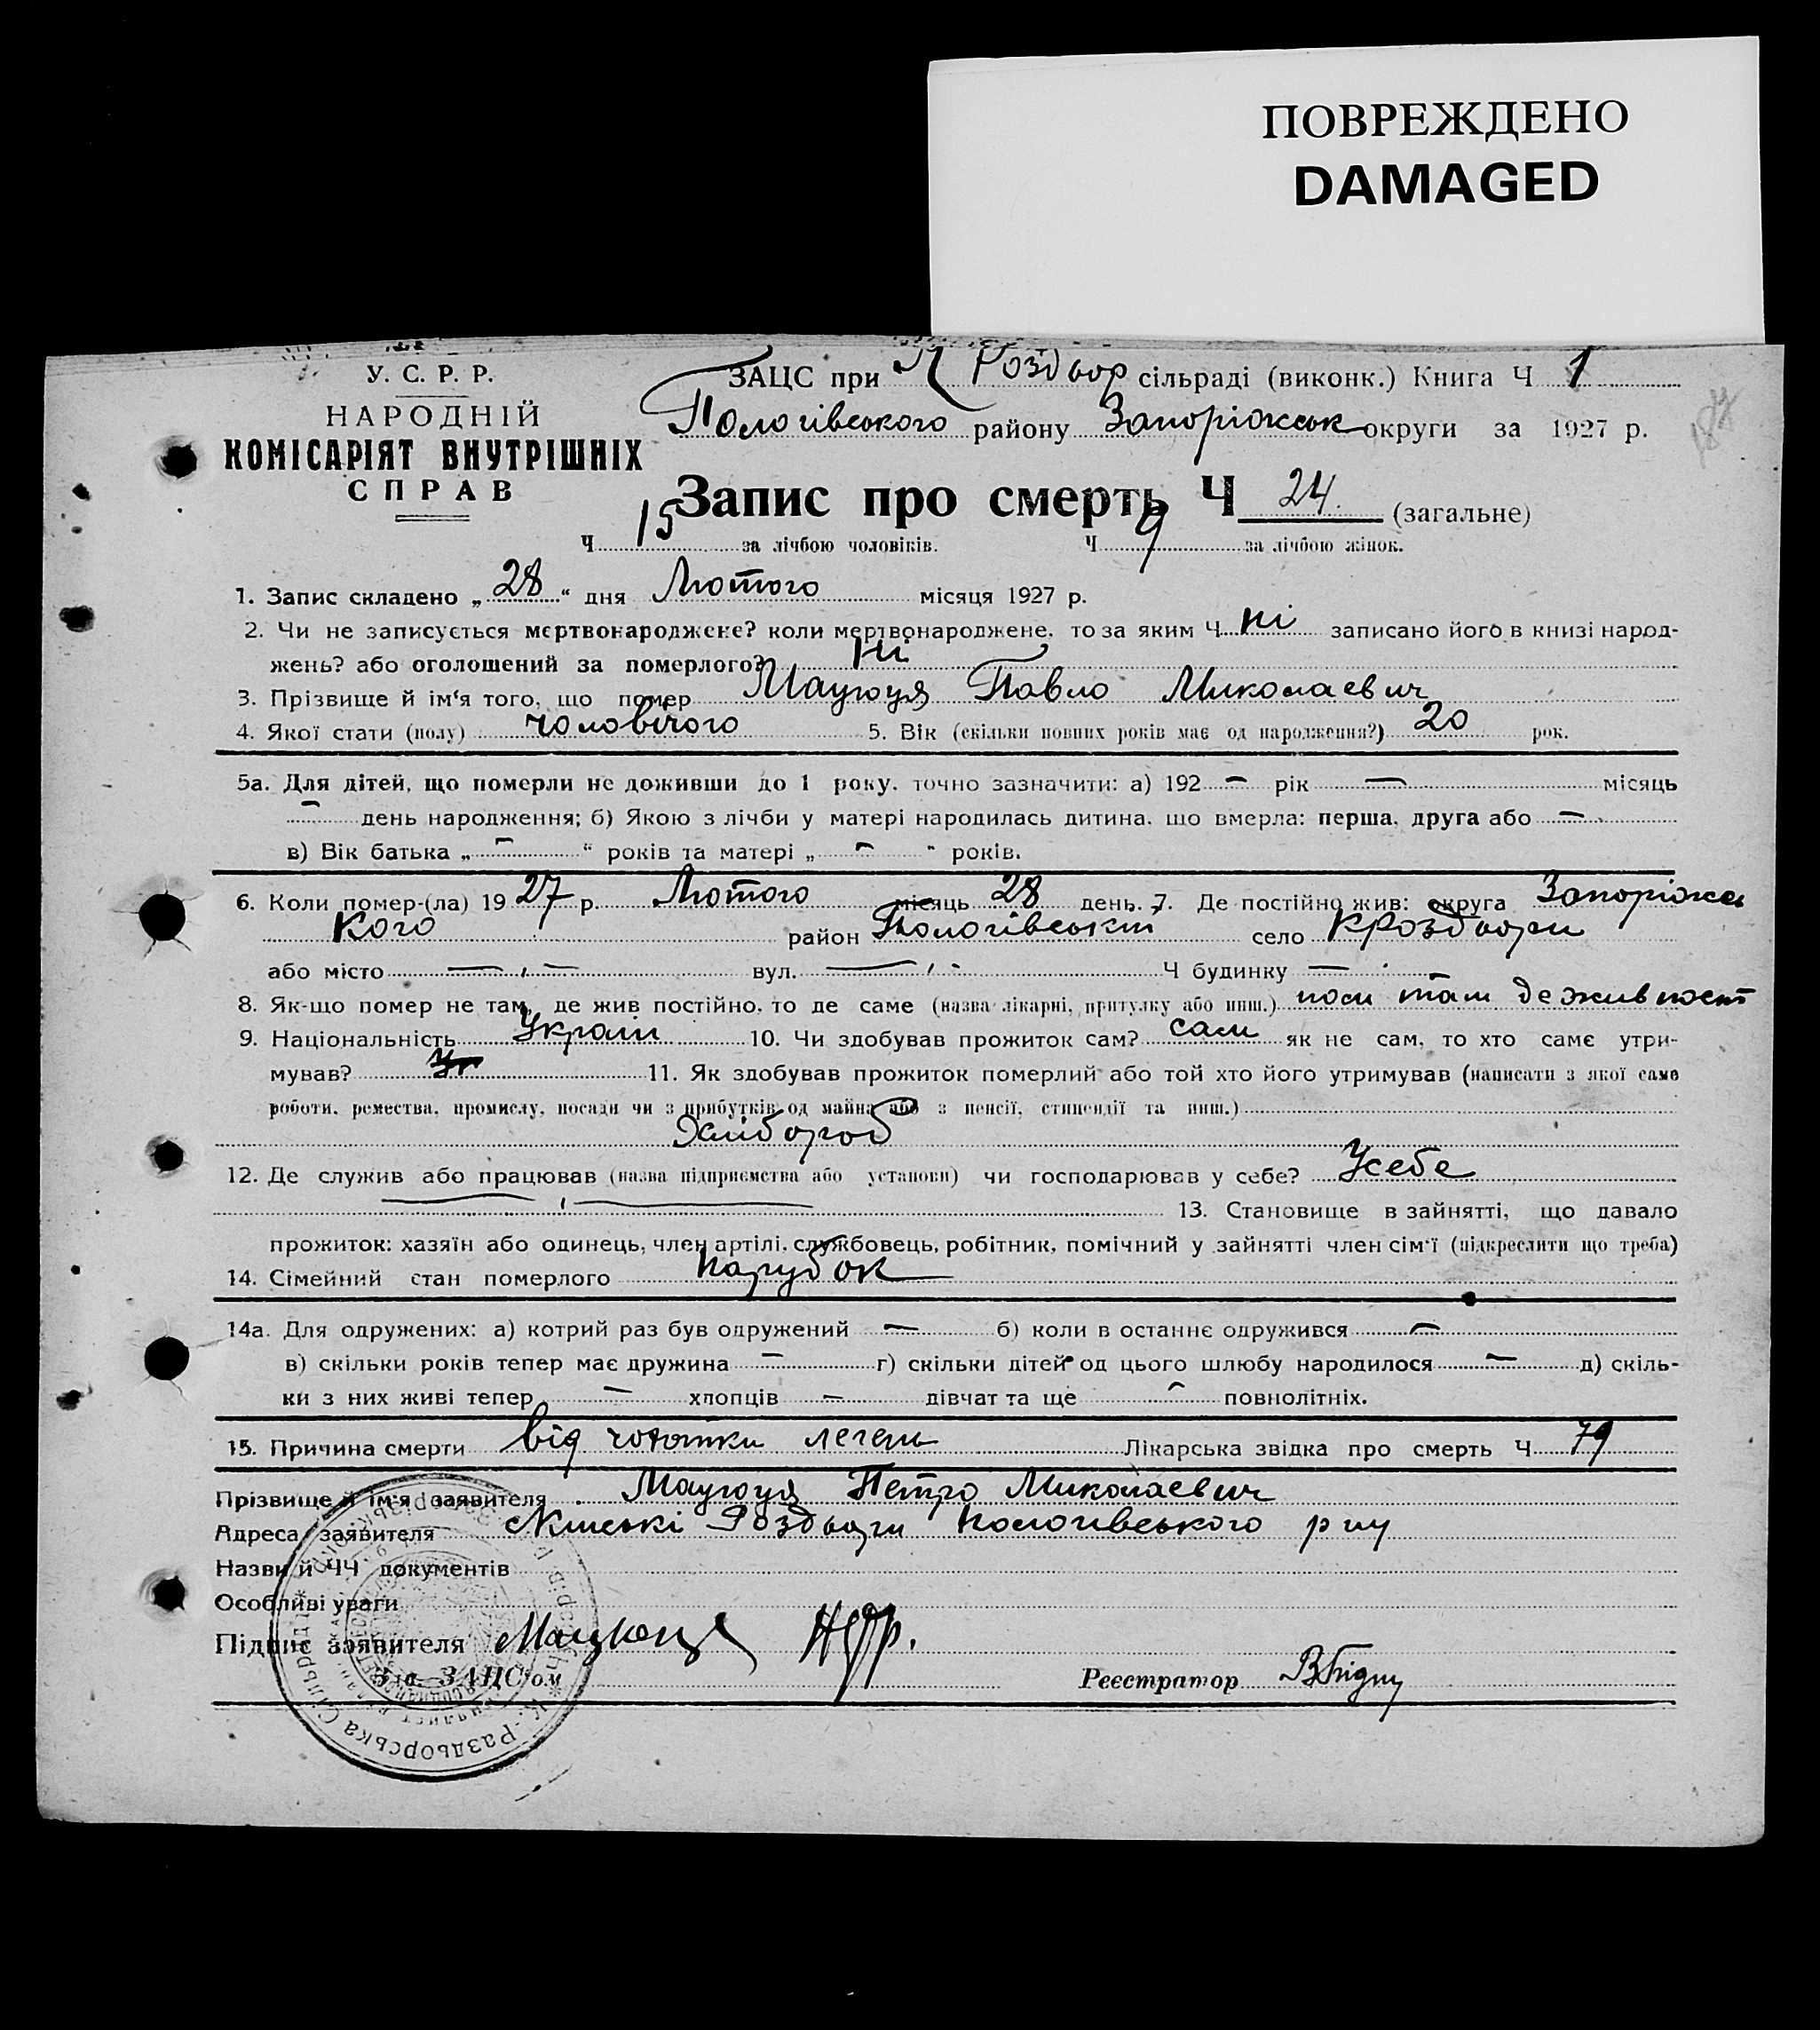 ПОВРЕЖДЕНО
DAMAGED
У. С. Р. Р.
НАРОДНІЙ
КОМІСАРІЯТ ВНУТРІШНІХ
СПРАВ
ЗАЦС при К Роздвор сільраді (виконк.) Книга Ч 1
Пологівського району Запоріжськ округи за 1927 р.
Запис про смерть Ч 24. (загальне)
Ч 15 за лічбою чоловіків. Ч 9 за лічбою жінок.
1. Запис складено „ 28 “ дня Лютого місяця 1927 р.
2. Чи не записується мертвонароджене? коли мертвонароджене, то за яким Ч ні записано його в книзі народ-
жень? або оголошений за померлого? Ні
3. Прізвище й ім‘я того, що помер Мацюця Павло Миколаевич
4. Якої стати (полу) чоловічого 5. Вік (скільки повних років має од народження?) 20 рок.
5а. Для дітей, що померли не доживши до 1 року, точно зазначити: а) 192 — рік — місяць
— день народження; б) Якою з лічби у матері народилась дитина, що вмерла: перша, друга або —
в) Вік батька „ — “ років та матері „ — “ років.
6. Коли помер-(ла) 19 27 р. Лютого місяць 28 день. 7. Де постійно жив: округа Запоріжсь
кого район Пологівський село КРоздори
або місто — вул. — Ч будинку —
8. Як-що помер не там, де жив постійно, то де саме (назва лікарні, притулку або инш.) там де жив
9. Національність Україн 10. Чи здобував прожиток сам? сам як не сам, то хто саме утри-
мував? 11. Як здобував прожиток померлий або той хто його утримував (написати з якої само
роботи, ремества, промислу, посади чи з прибутків од майна або з пенсії, стипендії та инш.)
Хлібороб
12. Де служив або працював (назва підприємства або установи) чи господарював у себе? Усебе
13. Становище в зайнятті, що давало
прожиток: хазяїн або одинець, член артілі, службовець, робітник, помічний у зайнятті член сім‘ї (підкреслити що треба)
14. Сімейний стан померлого парубок
14а. Для одружених: а) котрий раз був одружений — б) коли в останнє одружився —
в) скільки років тепер має дружина — г) скільки дітей од цього шлюбу народилося — д) скіль-
ки з них живі тепер — хлопців — дівчат та ще — повнолітніх.
15. Причина смерти від чохотки легень Лікарська звідка про смерть Ч 79
Прізвище й ім‘я заявителя Мацюця Петро Миколаевич
Адреса заявителя Кінські Роздори Пологивського р ну
Назви й ЧЧ документів
Особливі уваги
Підпис заявителя Мацюця
Зав. ЗАЦС‘ом Реєстратор
К.-Раздорська Сільрада